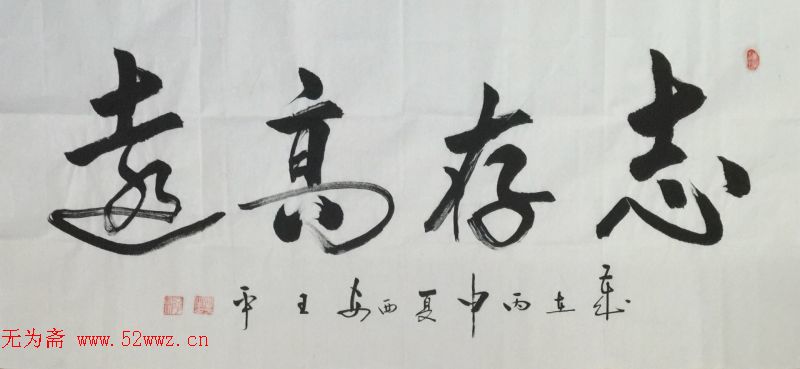 志存高遠
歲在丙申夏西安王平
无为斋 www.52wwz.cn